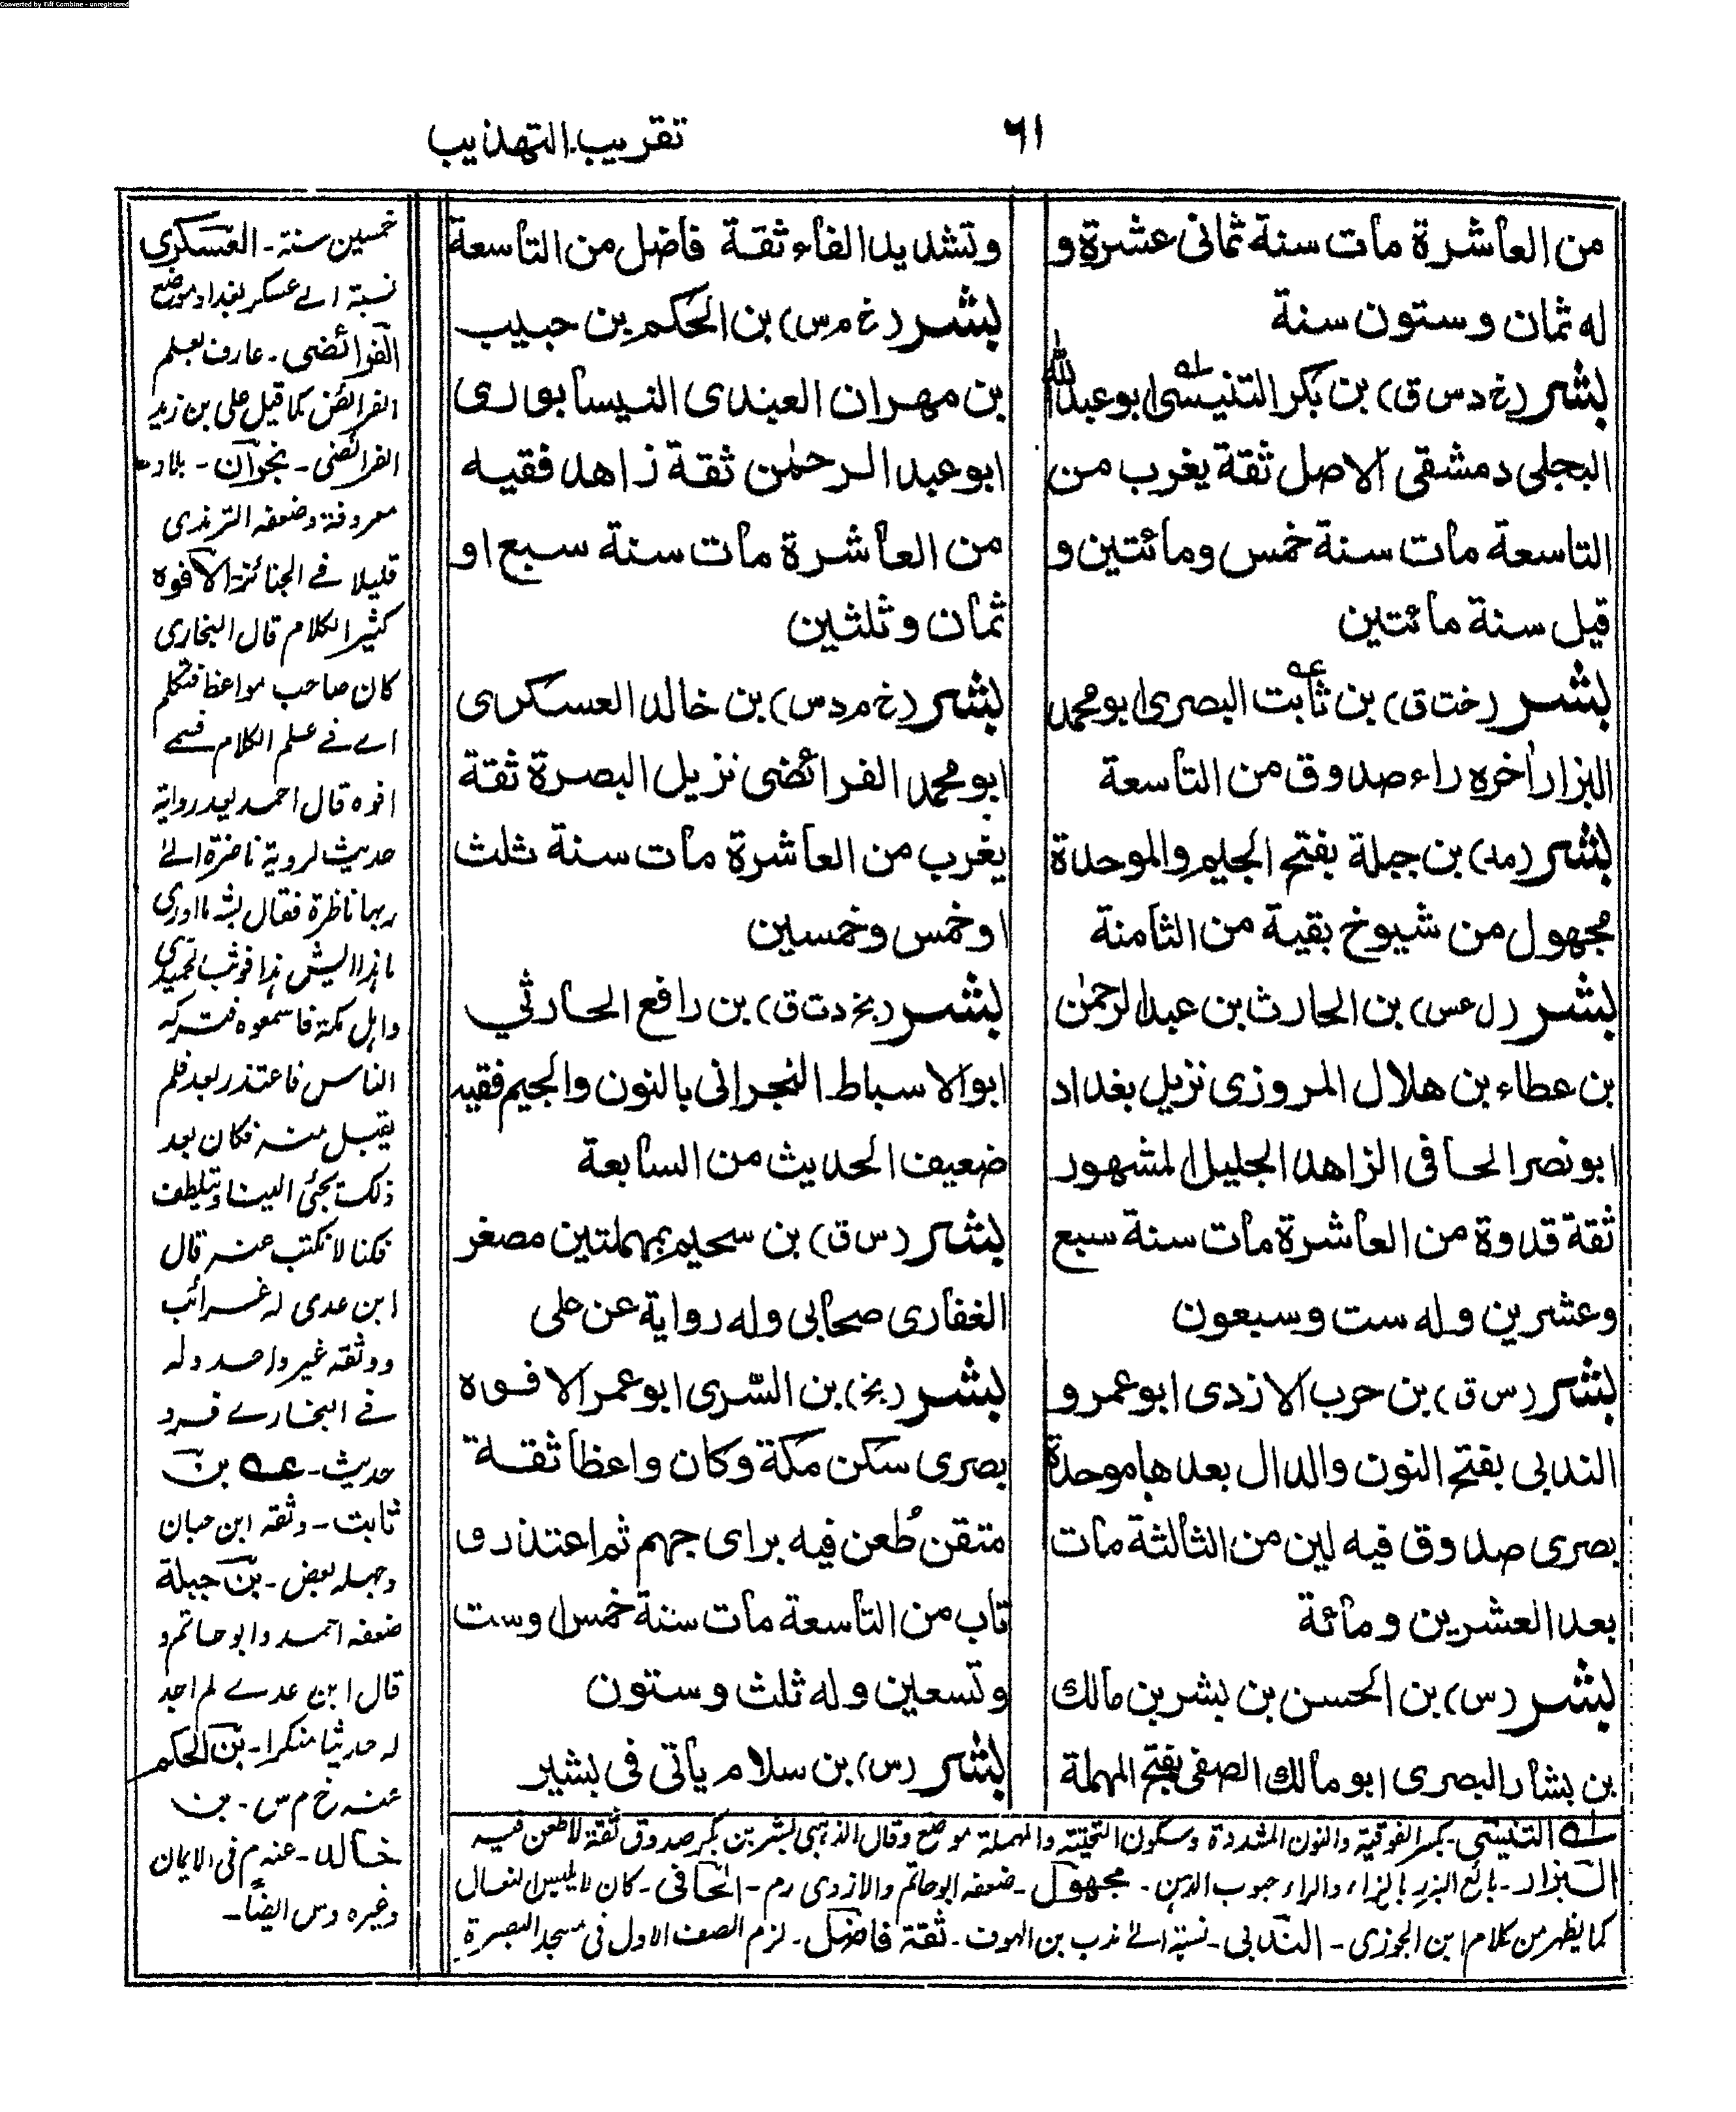 Converted by Tiff Combine - unregistered
٦١
تقريب التهذيب
من العاشرة مات سنة ثمانى عشرة و
له ثمان وستون سنة
بشر (خ د س ق) بن بكر التنيسى ابو عبدالله
البجلى دمشقى الاصل ثقة يغرب من
التاسعة مات سنة خمس ومائتين و
قيل سنة مائتين
بشر (خت ق) بن ثابت البصرى ابو محمد
البزار آخره راء صدوق من التاسعة
بشر (مد) بن جبلة بفتح الجيم والموحدة
مجهول من شيوخ بقية من الثامنة
بشر (ل عس) بن الحارث بن عبدالرحمٰن
بن عطاء بن هلال المروزى نزيل بغداد
ابونصر الحافى الزاهد الجليل المشهور
ثقة قدوة من العاشرة مات سنة سبع
وعشرين وله ست وسبعون
بشر (س ق) بن حرب الازدى ابو عمرو
الندبى بفتح النون والدال بعدها موحدة
بصرى صدوق فيه لين من الثالثة مات
بعد العشرين ومائة
بشر (س) بن الحسن بن بشر بن مالك
بن بشار البصرى ابو مالك الصفى بفتح المهملة
وتشديد الفاء ثقة فاضل من التاسعة
بشر (خ م س) بن الحكم بن حبيب
بن مهران العبدى النيسابورى
ابو عبد الرحمٰن ثقة زاهد فقيه
من العاشرة مات سنة سبع او
ثمان وثلثين
بشر (خ م د س) بن خالد العسكرى
ابو محمد الفرائضى نزيل البصرة ثقة
يغرب من العاشرة مات سنة ثلث
اوخمس وخمسين
بشر (بخ دت ق) بن رافع الحارثي
ابوالاسباط النجرانى بالنون والجيم فقيه
ضعيف الحديث من السابعة
بشر (س ق) بن سحيم بمهملتين مصغر
الغفارى صحابى وله رواية عن على
بشر (بخ) بن السّرى ابو عمر الافوه
بصرى سكن مكة وكان واعظا ثقة
متقن طُعن فيه براى جهم ثم اعتذر و
تاب من التاسعة مات سنة خمس اوست
وتسعين وله ثلث وستون
بشر (س) بن سلام ياتى فى بشير
له التنيسى - بكسر الفوقية والنون المشددة وسكون التحتية والمهملة موضع وقال الذهبى بشر بن بكر صدوق ثقة لا طعن فيه
البزار - بائع البزر بالزاء والراء حبوب الدهن - مجهول - ضعفه ابوحاتم والازدى رم - الحافى - كان لا يلبس النعال
كما يظهر من كلام ابن الجوزى - الندبى - نسبة الى ندب بن الهون - ثقة فاضل - لزم الصف الاول فى مسجد البصرة
خمسين سنة - العسكرى
نسبة الے عسكر بغداد موضع
الفرائضى - عارف بعلم
الفرائض كما قيل على بن زيد
الفرائضى - نجران - بلاد
معروفة وضعفه الترمذى
قليلا فے الجنائز الافوه
كثير الكلام قال البخارى
كان صاحب مواعظ فتكلم
اے فے علم الكلام فسمے
افوه قال احمد بعد رواية
حديث لروية ناضرة الے
ربها ناظرة فقال بشر ما ادرى
ما هذا ايش هذا فوثب الحميدى
واهل مكة فاسمعوه فتركه
الناس فاعتذر بعد فلم
يقبل منه فكان بعد
ذلك يجئ الينا ويتلطف
فكنا لا نكتب عنه قال
ابن عدى له غرائب
ووثقه غير واحد وله
فے البخارے فرد
حديث - عه بن
ثابت - وثقه ابن حبان
وجهله بعض - بن جبلة
ضعفه احمد وابو حاتم و
قال ابن عدے لم اجد
له حديثا منكرا - بن الحكم
عنه خ م س - بن
خالد - عنه م فى الايمان
وغيره وس ايضا -